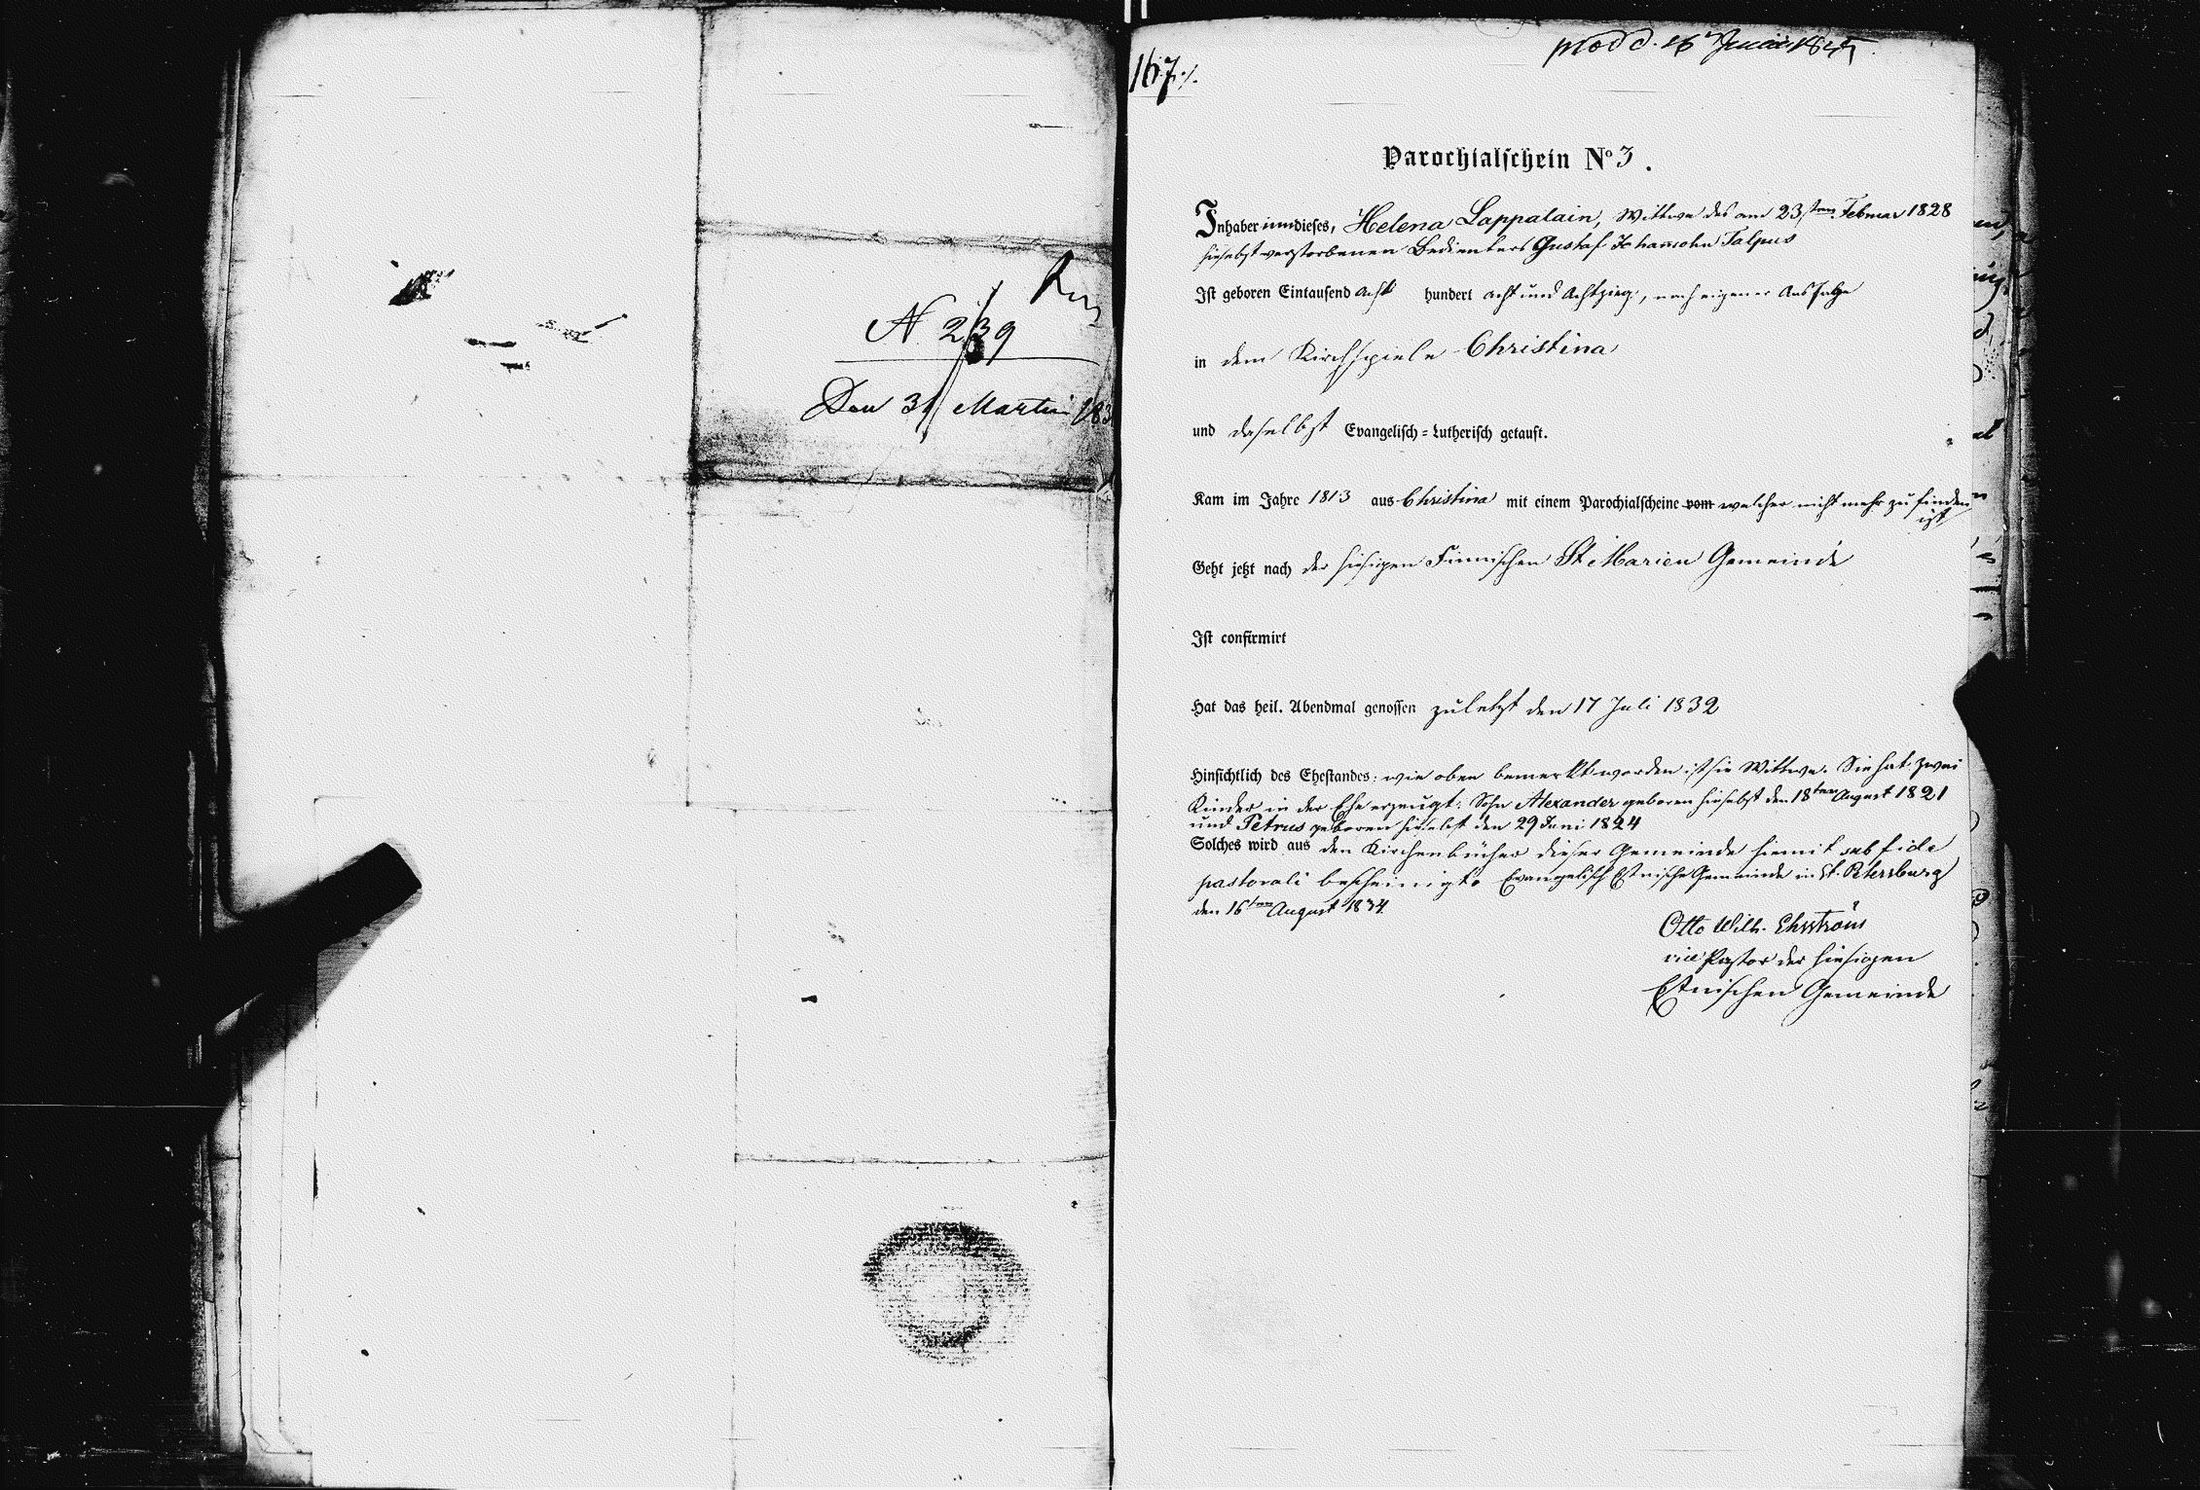 N. 239
Den 31 Martii 183
167./.
prod d. 16 Junii
Parochialschein No 3.
Inhaberinn dieses, Helena Lappalain, Wittwe des am 23sten Februar 1828
hieselbst verstorbenen Bedienters Gustaf Johannsohn Talpus
Ist geboren Eintausend acht hundert acht und Achtzig, nach eigener Aussage
in dem Kirchspiele Christina
und daselbst Evangelisch=Lutherisch getauft.
Kam im Jahre 1813 aus Christina mit einem Parochialscheine vom welcher nicht mehr zu finden
ist
Geht jetzt nach der hiesigen Finnischen St Marien Gemeinde
Ist confirmirt
Hat das heil. Abendmal genossen zuletzt den 17 Juli 1832
Hinsichtlich des Ehestandes: wie oben bemerkt worden ist sie Wittwe. Sie hat zwei
Kinder in der Ehe erzeugt: Sohn Alexander geboren hieselbst den 18ten August 1821
und Petrus geboren hieselbst den 29 Juni 1824
Solches wird aus den Kirchenbücher dieser Gemeinde hiemit sub fide
pastorali bescheinigt. Evangelisch Estnische Gemeinde in St. Petersburg
den 16ten August 1834.
Otto Wilh. Ehrström
vice Pastor der hiesigen
Estnischen Gemeinde